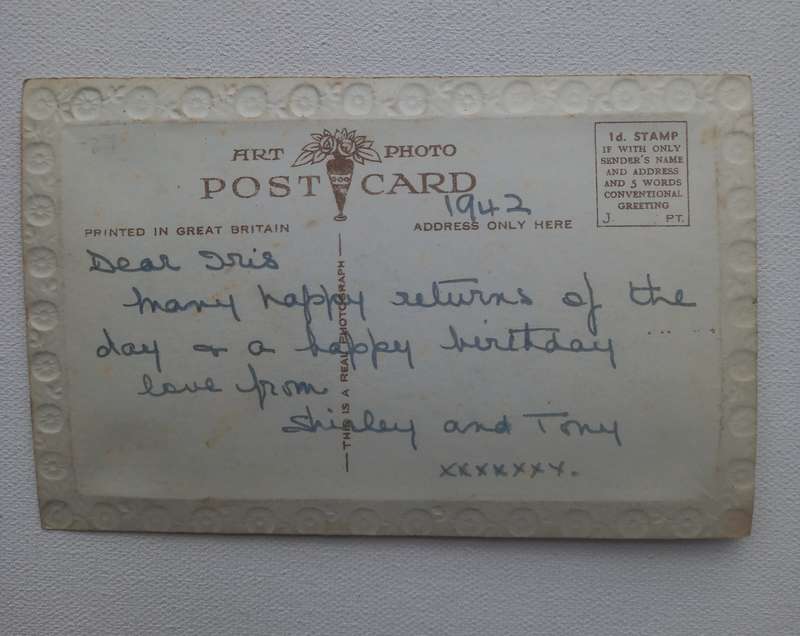 ART PHOTO
POST CARD
1942
PRINTED IN GREAT BRITAIN
ADDRESS ONLY HERE
1d. STAMP
IF WITH ONLY
SENDER'S NAME
AND ADDRESS
AND 5 WORDS
CONVENTIONAL
GREETING
J. PT.
THIS IS A REAL PHOTOGRAPH
Dear Iris
many happy returns of the
day & a happy birthday
love from
Shirley and Tony
xxxxxxx.